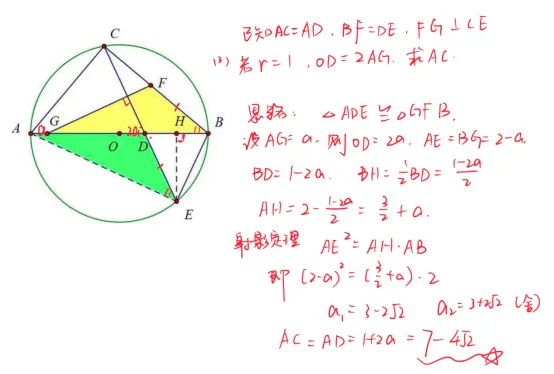 已知AC=AD, BF=DE, FG⊥CE
(3) 若r=1, OD=2AG. 求AC.
思路: △ADE≌△GFB.
设AG=a. 则OD=2a. AE=BG=2-a.
BD=1-2a. BH=½BD=(1-2a)/2
AH=2-(1-2a)/2=3/2+a.
射影定理 AE²=AH·AB
即 (2-a)²=(3/2+a)·2
a₁=3-2√2 a₂=3+2√2 (舍)
AC=AD=1+2a=7-4√2
C
F
A G O D H B
a 2a
E